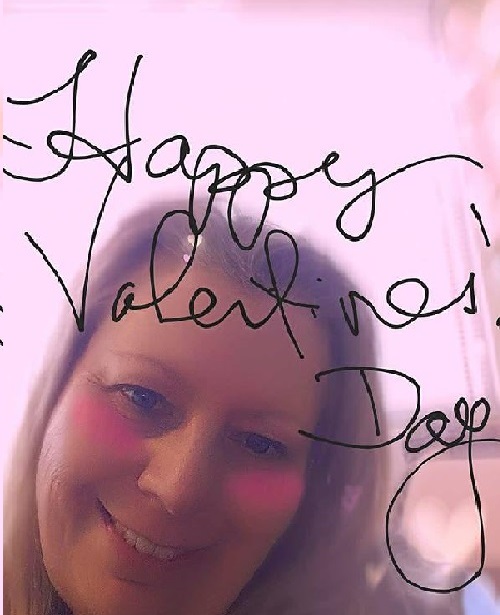 Happy
Valentines'
Day